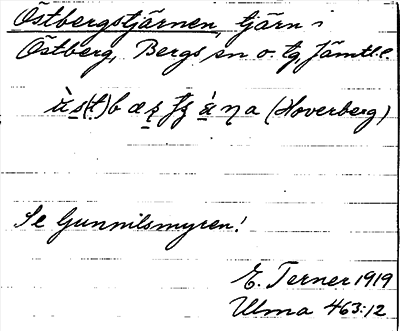 Östbergstjärnen, tjärn i
Östberg, Bergs sn o. tg, Jämtl.
(Hoverberg)
Se Gunnilsmyren!
E. Terner 1919
Ulma 463:12